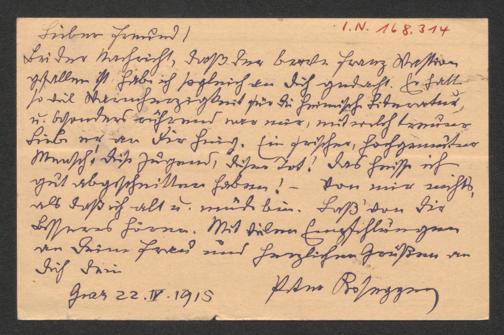 I.N. 168.314
Lieber Freund!
Bei der Nachricht, daß der brave Franz
gefallen ist, hab ich sogleich an Dich gedacht. Er hatte
so viel Warmherzigkeit für die heimische Literatur,
u. besonders rührend war mir, mit welch treuer
Liebe er an Dir hing. Ein frischer, hochgemuter
Mensch, diese Jugend, dieser Tod! Das heiße ich
gut abgeschnitten haben! – Von mir nichts,
als daß ich alt u. müde bin. Laß von Dir
Besseres hören. Mit vielen Empfehlungen
an Deine Frau und herzlichen Grüßen an
Dich Dein
Graz 22.IV.1915 Peter Rosegger